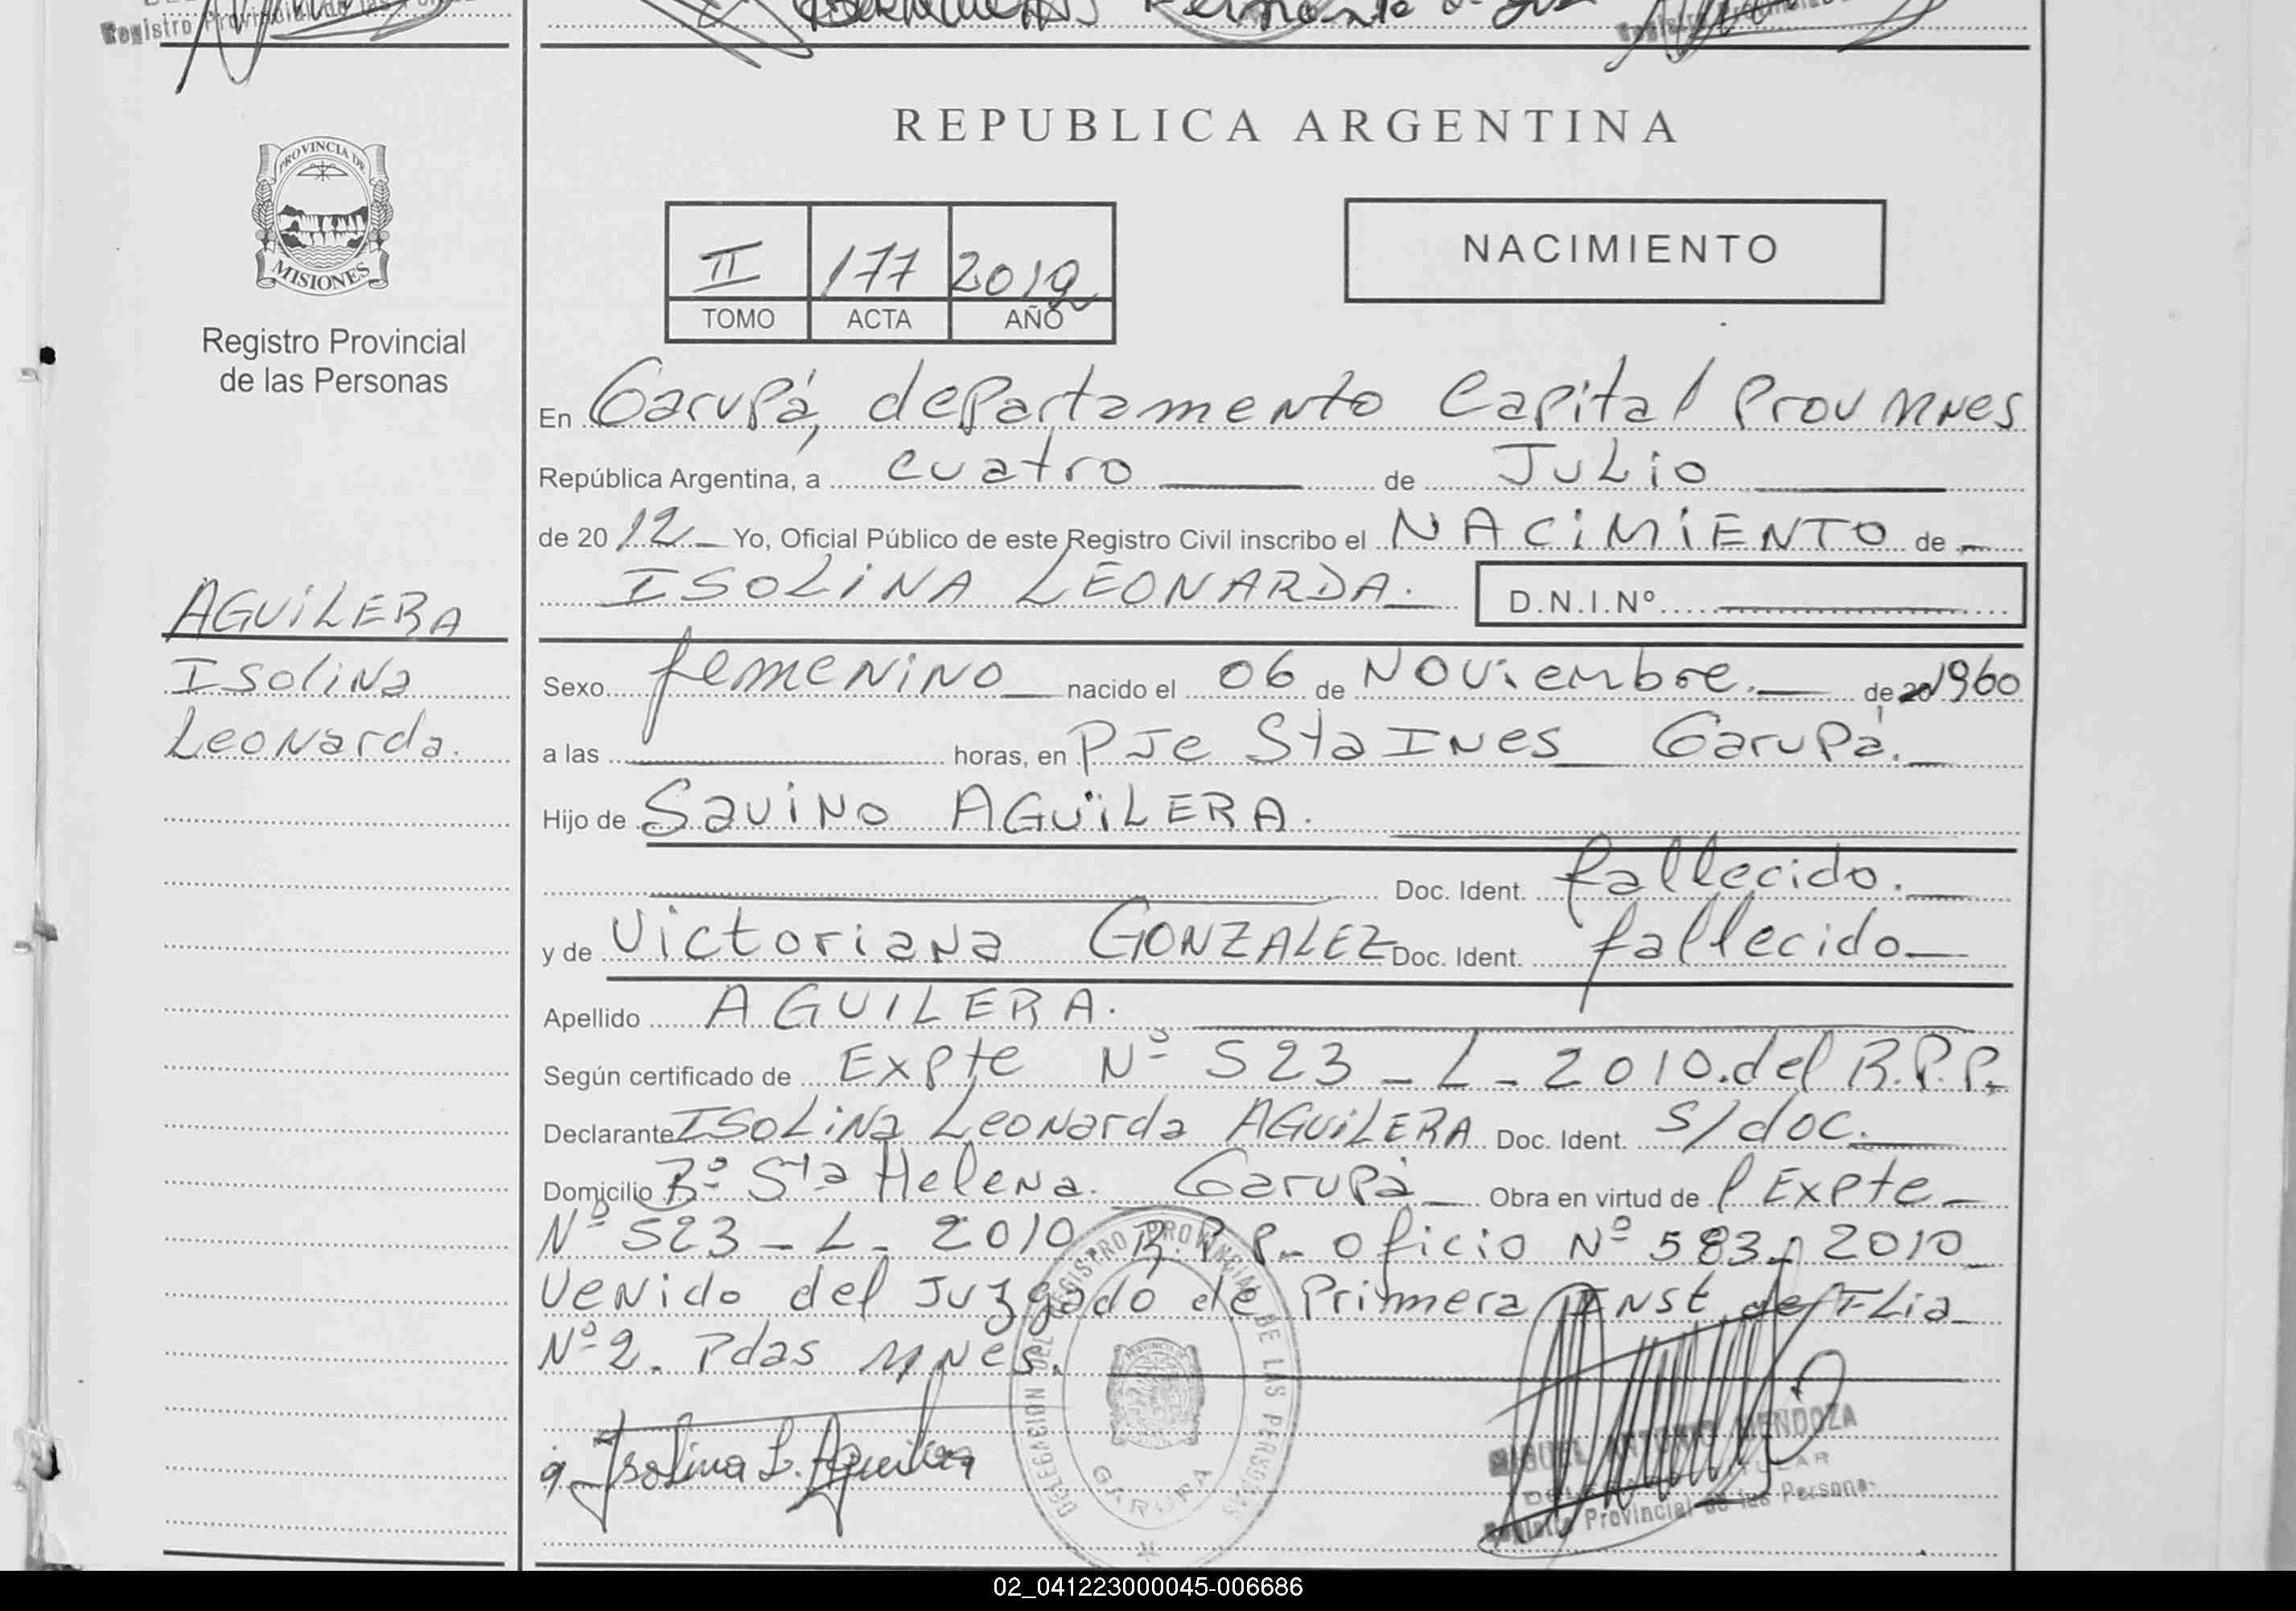 Registro Provincial de las
PROVINCIA DE
MISIONES
Registro Provincial
de las Personas
AGUILERA
Isolina
Leonarda.
REPUBLICA ARGENTINA
II 177 2012
TOMO ACTA AÑO
NACIMIENTO
En Garupá, departamento Capital Prov Mnes
República Argentina, a cuatro de Julio
de 20 12 Yo, Oficial Público de este Registro Civil inscribo el NACIMIENTO de
ISOLINA LEONARDA. D.N.I.Nº
Sexo femenino nacido el 06 de Noviembre. de 20 1960
a las horas, en Pje Sta Ines Garupá.
Hijo de Savino AGUILERA.
Doc. Ident. fallecido.
y de Victoriana GONZALEZ Doc. Ident. fallecido
Apellido AGUILERA.
Según certificado de Expte Nº 523 - L - 2010. del R.P.P.
Declarante Isolina Leonarda AGUILERA Doc. Ident. s/doc.
Domicilio Bº Sta Helena. Garupá Obra en virtud de l Expte
Nº 523 - L - 2010. R.P.P. oficio Nº 583 - 2010
venido del Juzgado de Primera Inst de Flia
Nº 2. Pdas Mnes.
Isolina L. Aguilera
DELEGACION DEL REGISTRO PROVINCIAL DE LAS PERSONAS
GARUPA
MIGUEL ANTONIO MENDOZA
DELEGADO TITULAR
Registro Provincial de las Personas
02_041223000045-006686